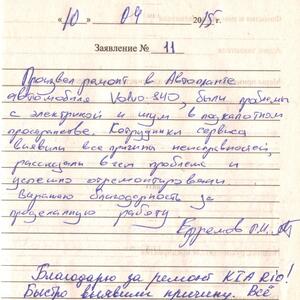 «10» 04 2015г.
Заявление № 11
Произвел ремонт в Автогранте
автомобиля Volvo-S40, были проблемы
с электрикой и шум в подкапотном
пространстве. Сотрудники сервиса
выявили все причины неисправностей,
рассказали в чем проблема и
успешно отремонтировали
Выражаю благодарность за
проделанную работу
Ефремов
Благодарю за ремонт KIA Rio!
Быстро выявили причину. Всё